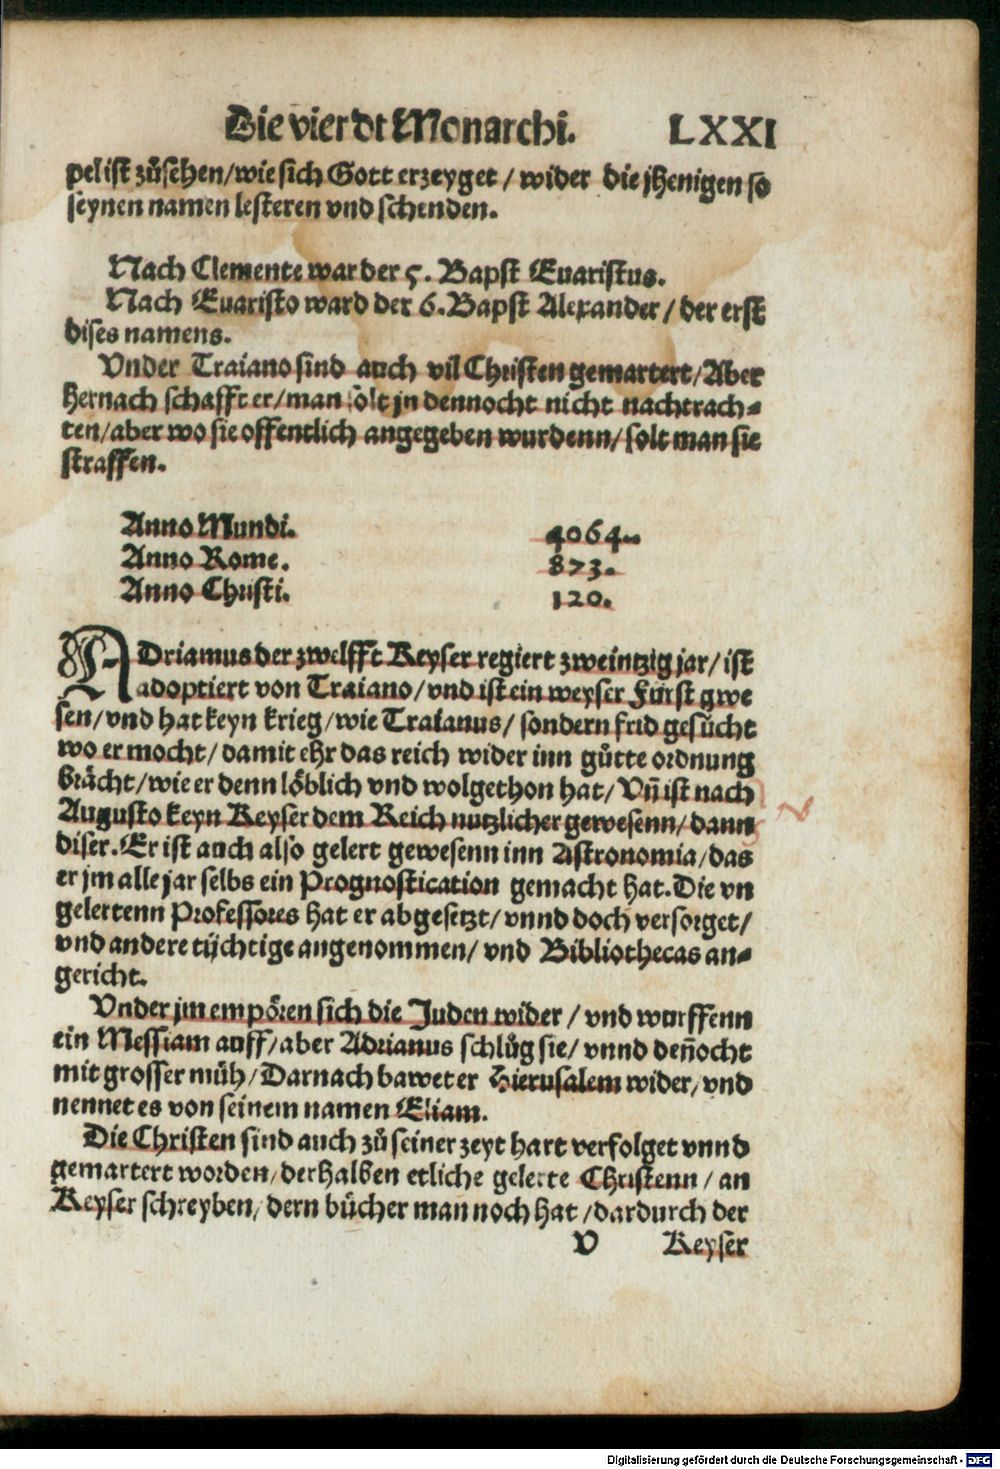 Die vierdt Monarchi. LXXI
pel ist zůsehen/wie sich Gott erzeyget/wider die jhenigen so
seynen namen lesteren vnd schenden.
Nach Clemente war der 5. Bapst Euaristus.
Nach Euaristo ward der 6. Bapst Alexander/der erst
dises namens.
Vnder Traiano sind auch vil Christen gemartert/Aber
hernach schafft er/man solt jn dennocht nicht nachtrach-
ten/aber wo sie offentlich angegeben wurdenn/solt man sie
straffen.
Anno Mundi. 4064.
Anno Rome. 873.
Anno Christi. 120.
ADriamus der zwelfft Keyser regiert zweintzig jar/ist
adoptiert von Traiano/vnd ist ein weyser Fürst gwe
sen/vnd hat keyn krieg/wie Traianus/sondern frid gesůcht
wo er mocht/damit ehr das reich wider inn gůtte ordnung
brächt/wie er denn löblich vnd wolgethon hat/Vñ ist nach
Augusto keyn Keyser dem Reich nutzlicher gewesenn/dann
diser. Er ist auch also gelert gewesenn inn Astronomia/das
er jm alle jar selbs ein Prognostication gemacht hat. Die vn
gelertenn Professores hat er abgesetzt/vnnd doch versorget/
vnd andere tüchtige angenommen/vnd Bibliothecas an-
gericht.
Vnder jm empören sich die Juden wider/vnd wurffenn
ein Messiam auff/aber Adrianus schlůg sie/vnnd deñocht
mit grosser müh/Darnach bawet er Hierusalem wider/vnd
nennet es von seinem namen Eliam.
Die Christen sind auch zů seiner zeyt hart verfolget vnnd
gemartert worden/derhalben etliche gelerte Christenn/an
Keyser schreyben/dern bücher man noch hat/dardurch der
V Keyser
Digitalisierung gefördert durch die Deutsche Forschungsgemeinschaft - DFG